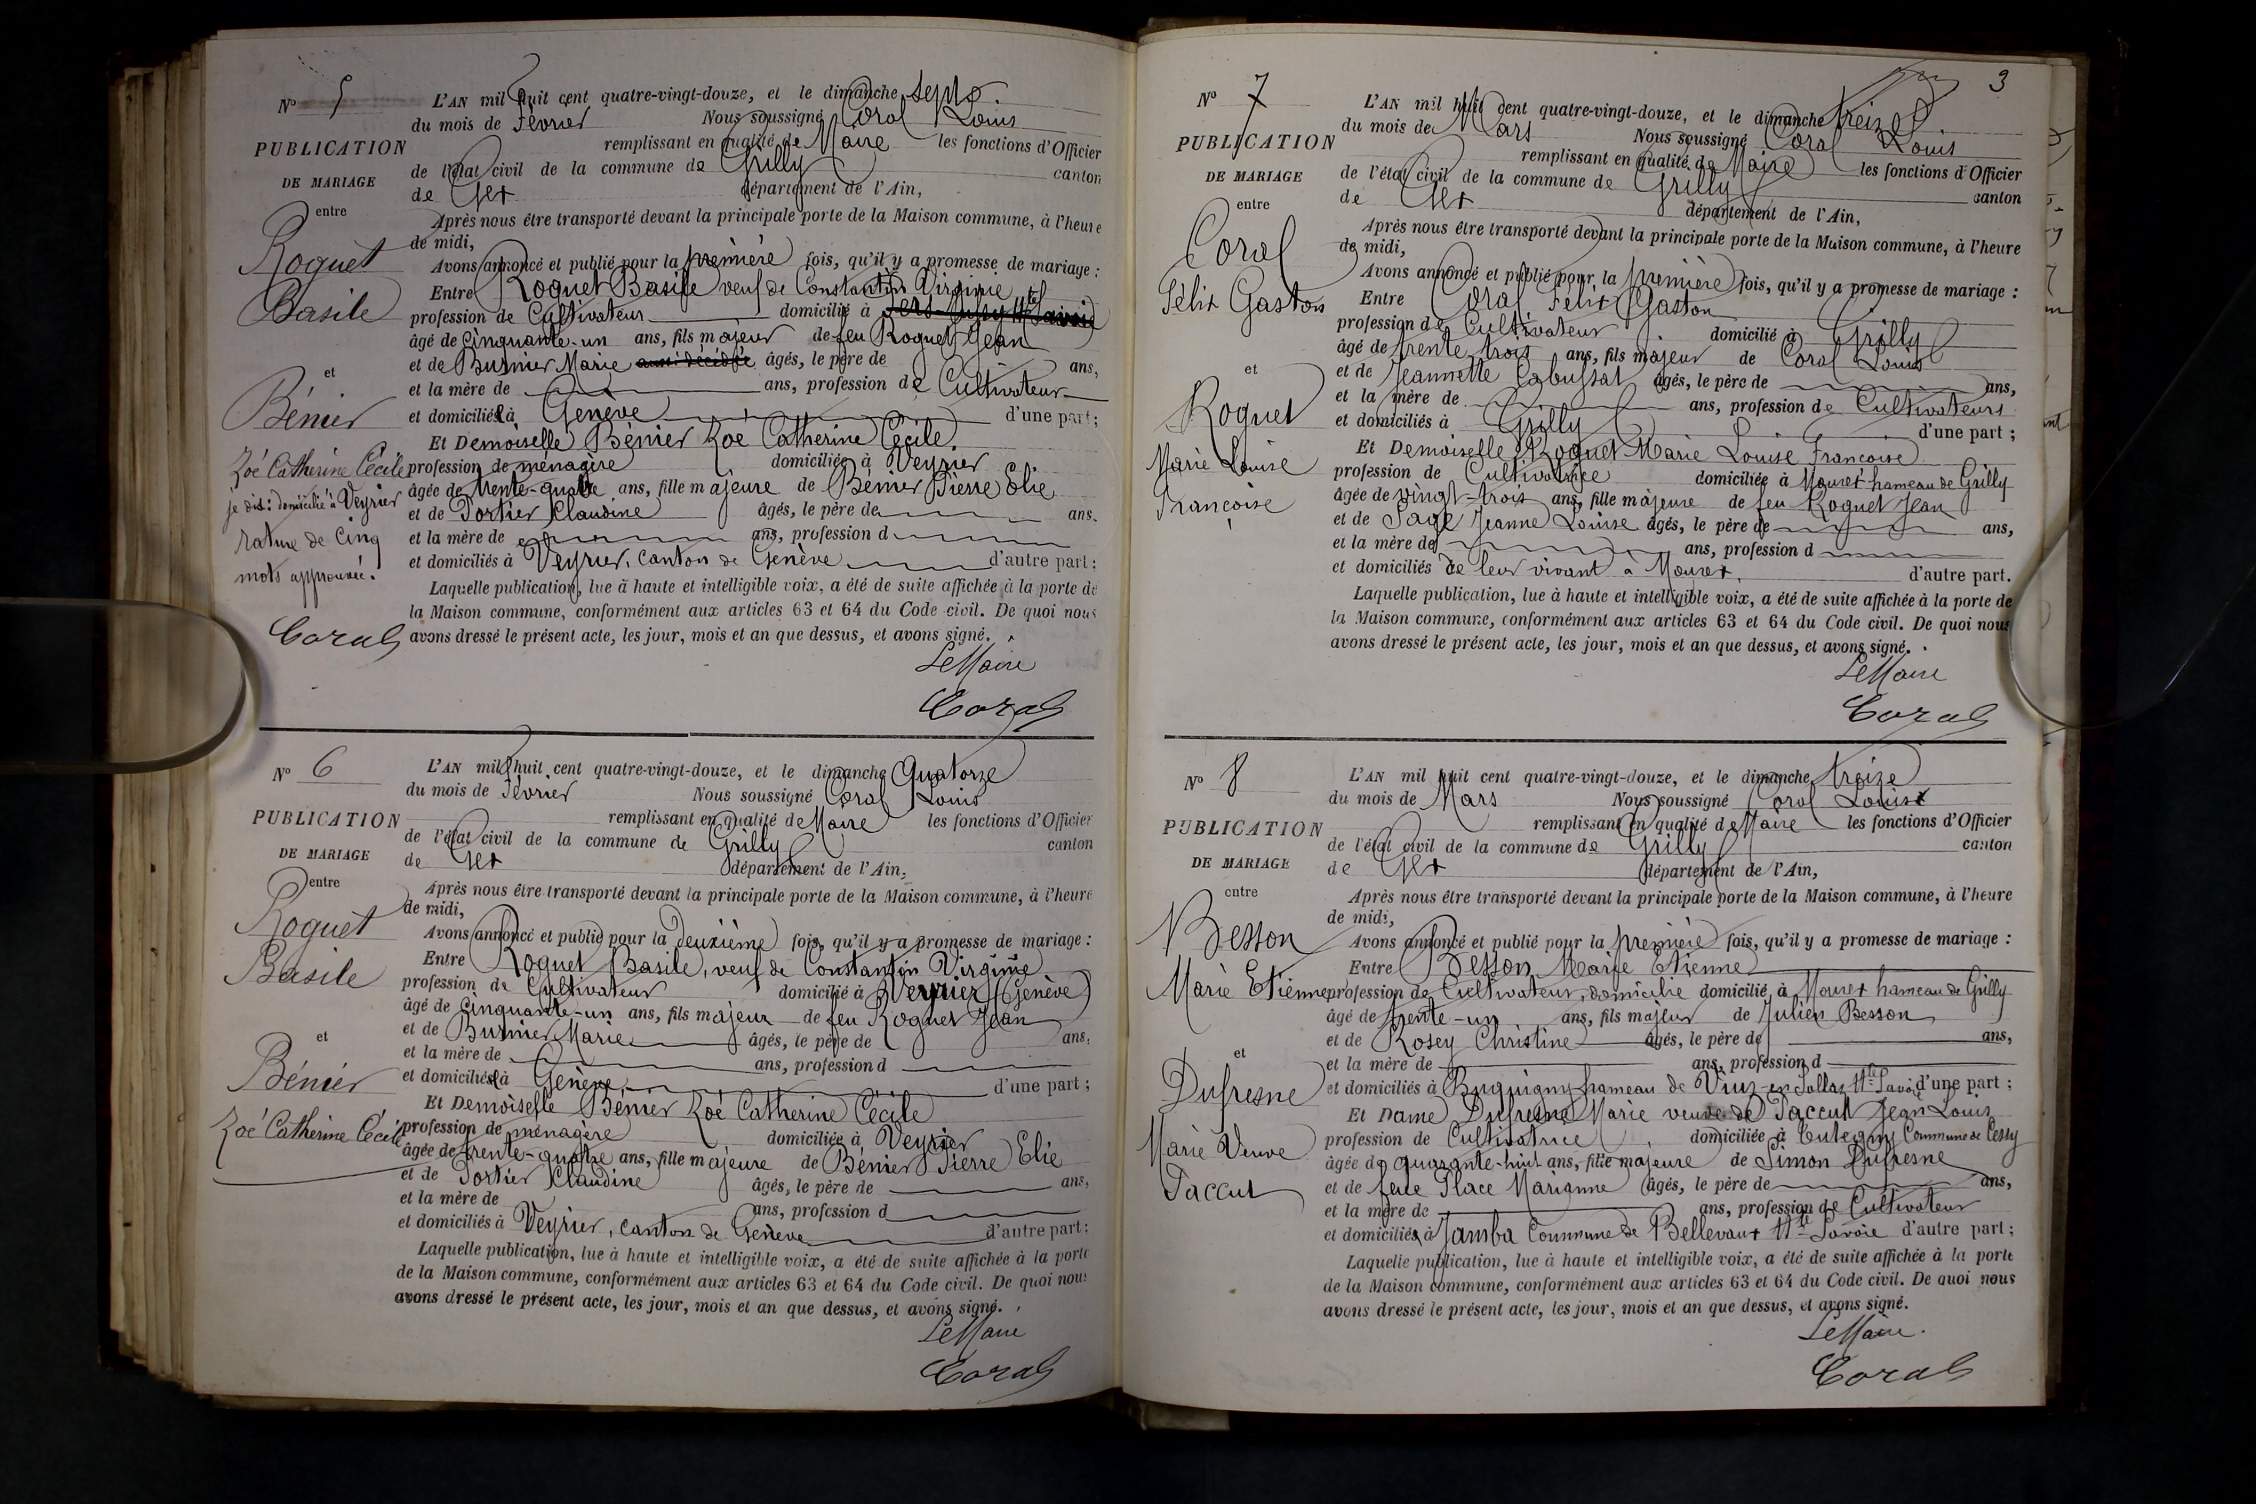 N° 5
PUBLICATION
DE MARIAGE
entre
Roguet
Basile
et
Bénier
Zoé Catherine Cécile
je dis: domicilié à Veyrier
rature de cinq
mots approuvée.
Coral
L'AN mil huit cent quatre-vingt-douze, et le dimanche sept
du mois de Février Nous soussigné Coral Louis
remplissant en qualité de Maire les fonctions d'Officier
de l'état civil de la commune de Grilly canton
de Gex département de l'Ain,
Après nous être transporté devant la principale porte de la Maison commune, à l'heure
de midi,
Avons annoncé et publié pour la première fois, qu'il y a promesse de mariage :
Entre Roguet Basile veuf de Constantin Virginie
profession de Cultivateur domicilié à
âgé de cinquante-un ans, fils majeur de feu Roguet Jean
et de Burnier Marie aussi décédée âgés, le père de ans,
et la mère de ans, profession de Cultivateur
et domiciliés à Genève d'une part;
Et Demoiselle Bénier Zoé Catherine Cécile
profession de ménagère domiciliée à Veyrier
âgée de trente-quatre ans, fille majeure de Bénier Pierre Elie
et de Portier Claudine âgés, le père de ans.
et la mère de ans, profession d
et domiciliés à Veyrier, canton de Genève d'autre part;
Laquelle publication, lue à haute et intelligible voix, a été de suite affichée à la porte de
la Maison commune, conformément aux articles 63 et 64 du Code civil. De quoi nous
avons dressé le présent acte, les jour, mois et an que dessus, et avons signé.
Le Maire
Coral
N° 6
PUBLICATION
DE MARIAGE
entre
Roguet
Basile
et
Bénier
Zoé Catherine Cécile
L'AN mil huit cent quatre-vingt-douze, et le dimanche Quatorze
du mois de Février Nous soussigné Coral Louis
remplissant en qualité de Maire les fonctions d'Officier
de l'état civil de la commune de Grilly canton
de Gex département de l'Ain,
Après nous être transporté devant la principale porte de la Maison commune, à l'heure
de midi,
Avons annoncé et publié pour la Deuxième fois, qu'il y a promesse de mariage :
Entre Roguet Basile, veuf de Constantin Virginie
profession de Cultivateur domicilié à Veyrier (Genève)
âgé de cinquante-un ans, fils majeur de feu Roguet Jean
et de Burnier Marie âgés, le père de ans,
et la mère de ans, profession d
et domiciliés à Genève d'une part ;
Et Demoiselle Bénier Zoé Catherine Cécile
profession de ménagère domiciliée à Veyrier
âgée de trente-quatre ans, fille majeure de Bénier Pierre Elie
et de Portier Claudine âgés, le père de ans,
et la mère de ans, profession d
et domiciliés à Veyrier, canton de Genève d'autre part;
Laquelle publication, lue à haute et intelligible voix, a été de suite affichée à la porte
de la Maison commune, conformément aux articles 63 et 64 du Code civil. De quoi nous
avons dressé le présent acte, les jour, mois et an que dessus, et avons signé.
Le Maire
Coral
3
N° 7
PUBLICATION
DE MARIAGE
entre
Coral
Félix Gaston
et
Roguet
Marie Louise
Françoise
L'AN mil huit cent quatre-vingt-douze, et le dimanche treize
du mois de Mars Nous soussigné Coral Louis
remplissant en qualité de Maire les fonctions d'Officier
de l'état civil de la commune de Grilly canton
de Gex département de l'Ain,
Après nous être transporté devant la principale porte de la Maison commune, à l'heure
de midi,
Avons annoncé et publié pour la première fois, qu'il y a promesse de mariage :
Entre Coral Félix Gaston
profession de Cultivateur domicilié à Grilly
âgé de trente-trois ans, fils majeur de Coral Louis
et de Jeannette Cabussat âgés, le père de ans,
et la mère de ans, profession de Cultivateurs
et domiciliés à Grilly d'une part ;
Et Demoiselle Roguet Marie Louise Francoise
profession de Cultivatrice domiciliée à Mourex hameau de Grilly
âgée de vingt-trois ans, fille majeure de feu Roguet Jean
et de Page Jeanne Louise âgés, le père de ans,
et la mère de ans, profession d
et domiciliés de leur vivant à Mourex. d'autre part.
Laquelle publication, lue à haute et intelligible voix, a été de suite affichée à la porte de
la Maison commune, conformément aux articles 63 et 64 du Code civil. De quoi nous
avons dressé le présent acte, les jour, mois et an que dessus, et avons signé.
Le Maire
Coral
N° 8
PUBLICATION
DE MARIAGE
entre
Besson
Marie Etienne
et
Dufresne
Marie Veuve
Paccut
L'AN mil huit cent quatre-vingt-douze, et le dimanche treize
du mois de Mars Nous soussigné Coral Louis
remplissant en qualité de Maire les fonctions d'Officier
de l'état civil de la commune de Grilly canton
de Gex département de l'Ain,
Après nous être transporté devant la principale porte de la Maison commune, à l'heure
de midi,
Avons annoncé et publié pour la première fois, qu'il y a promesse de mariage :
Entre Besson Marie Etienne
profession de Cultivateur, domicilié domicilié à Mourex hameau de Grilly
âgé de trente-un ans, fils majeur de Julien Besson
et de Rosey Christine âgés, le père de ans,
et la mère de ans, profession d
et domiciliés à hameau de Viuz-en-Sallaz Hte Savoie d'une part ;
Et Dame Dufresne Marie veuve de Paccut Jean Louis
profession de Cultivatrice domiciliée à Tutegny Commune de Cessy
âgée de quarante-huit ans, fille majeure de Simon Dufresne
et de feue Place Marianne âgés, le père de ans,
et la mère de ans, profession de Cultivateur
et domiciliés à Jamba Commune de Bellevaux Hte Savoie d'autre part ;
Laquelle publication, lue à haute et intelligible voix, a été de suite affichée à la porte
de la Maison commune, conformément aux articles 63 et 64 du Code civil. De quoi nous
avons dressé le présent acte, les jour, mois et an que dessus, et avons signé.
Le Maire.
Coral